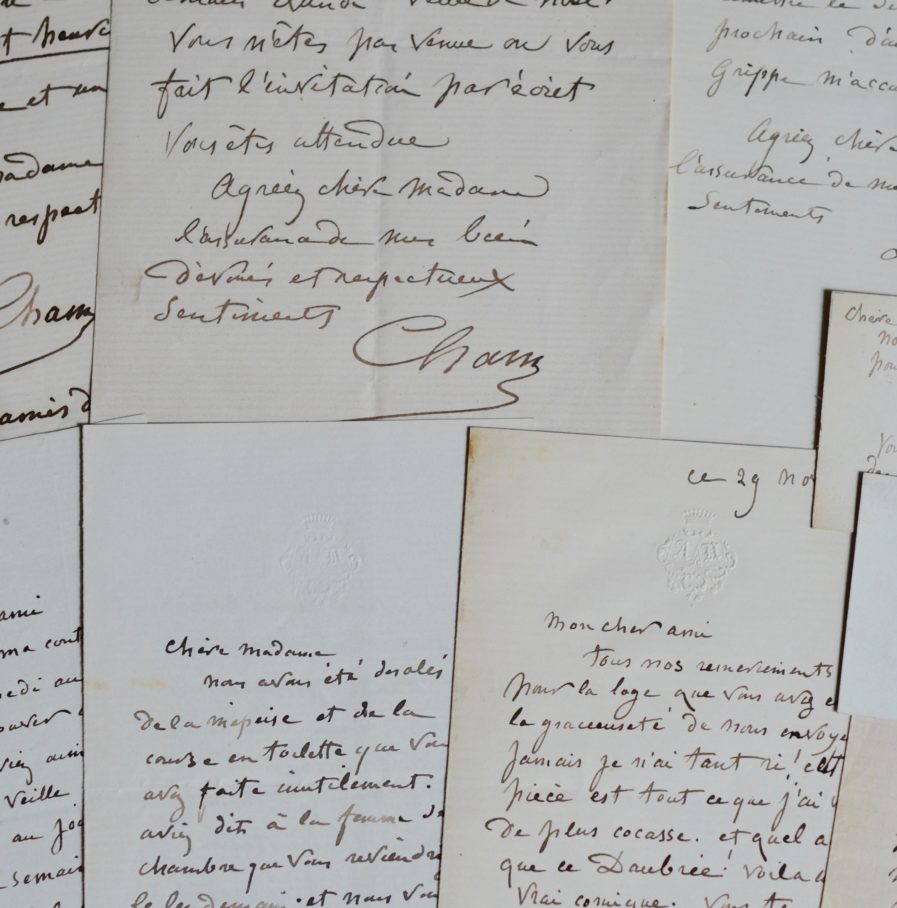 t heure
e et un
madame
respect
Cham
amis d
Vous n'êtes pas venue on vous
fait l'invitation par écrit
Vous êtes attendue
Agréez chère madame
l'assurance de mes bien
dévoués et respectueux
Sentiments
Cham
prochain d'au
Grippe m'acca
Agréez chère
l'assurance de me
Sentiments
chère
no
pou
Vou
de
ami
ma cont
edi au
veille
au jo
semain
chère madame
nous avons été desolés
De la méprise et de la
course en toilette que vou
avez faite inutilement.
aviez dits à la femme de
chambre que vous reviendr
le lendemain. et nous vou
ce 29 No
A D
C
mon cher ami
Tous nos remerciements
pour la loge que vous avez e
la gracieuseté de nous envoye
Jamais je n'ai tant ri! c'est
pièce est tout ce que j'ai
De plus cocasse. et quel a
que ce Daubrée! Voila
vrai comique.